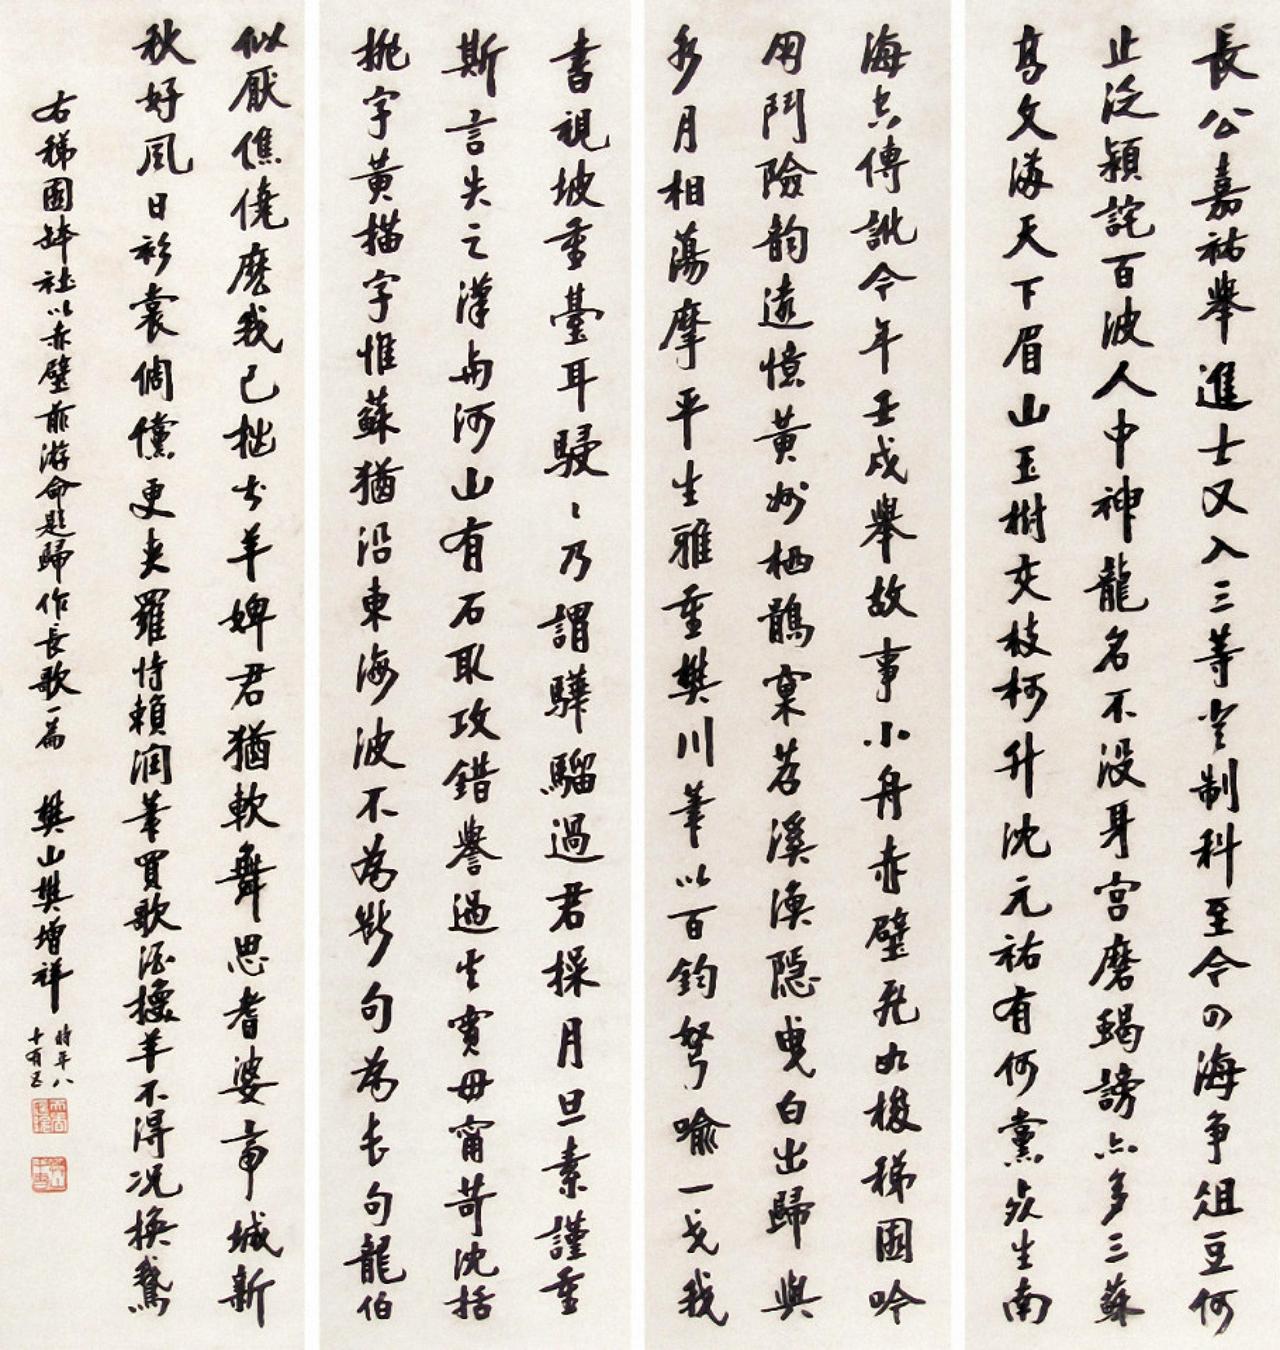 長公嘉祐舉進士又入三等空制科至今四海爭俎豆何
止泛潁詫百波人中神龍名不没身宮磨蝎謗亦多三蘇
高文滿天下眉山玉樹交枝柯升沈元祐有何黨衆生南
海亦傳訛今年壬戌舉故事小舟赤壁飛如梭稊園吟
朋鬥險韵遠憶黃州栖鶻窠苕溪漁隱曳白出歸與
水月相蕩摩平生雅重樊川筆以百鈞弩喻一戈我
書視坡重臺耳駸駸乃謂驊騮過君操月旦素謹重
斯言失之漢與河山有石取攻錯譽過失實毋甯苛沈括
挑字黃描字惟蘇猶沿東海波不為斷句為長句龍伯
似厭僬僥麽我已拙書羊婢君猶軟舞思耆婆帝城新
秋好風日衫裳倜儻更夫羅恃賴潤筆買歌酒換羊不得况換鵞
右稊園鉢社以赤壁前游命題歸作長歌一篇 樊山樊增祥 時年八
十有五